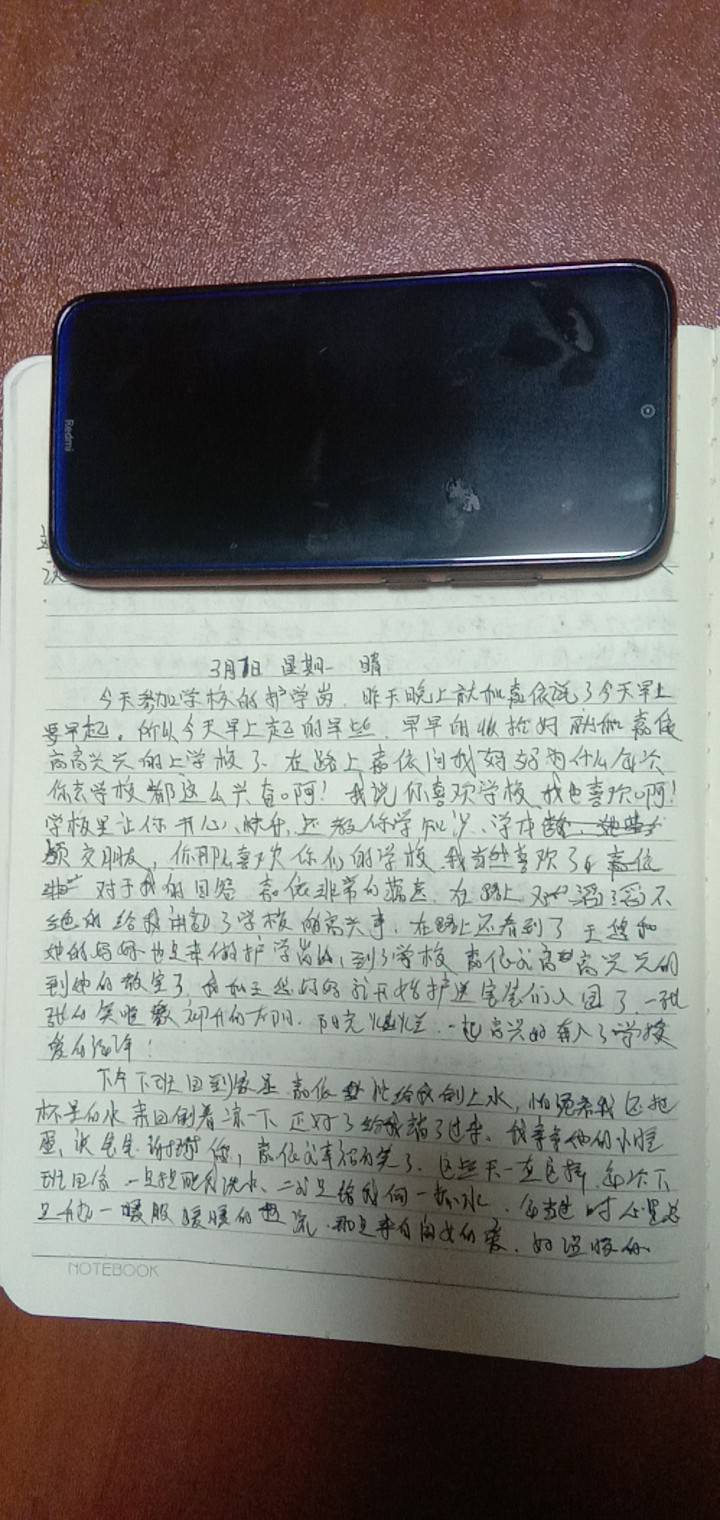 Redmi
3月1日 星期一 晴
今天参加学校的护学岗，昨天晚上就和嘉依说了今天早上
要早起。所以今天早上起的早些，早早的收拾好就和嘉依
高高兴兴的上学校了。在路上嘉依问我妈妈为什么每次
你去学校都这么兴奋啊！我说你喜欢学校，我也喜欢啊！
学校里让你开心、快乐，还教你学知识、学本
领交朋友，你那么喜欢你们的学校 我当然喜欢了
对于我的回答 嘉依非常的满意，在路上 滔滔不
绝的给我讲 了学校的高兴事，在路上还看到了王 和
她的妈妈也是来做护学岗的，到了学校 嘉依 高高兴兴的
到他的教室了，我和王 妈妈就开始护送宝贝们入园了。一张
张的笑脸 的太阳，阳光 一起高兴的 入了学校
爱的
下午下班回到家里 嘉依 给我倒上水，怕 我 把
杯里的水来回倒着凉一下 正好了给我端了过来。我亲亲他的小脸
蛋，说 谢谢你，嘉依 幸福的笑了。这些天一直这样，每次下
班回家 一是提醒我洗手、二 是给我 一杯水。每当这时心里总
是 一暖 暖暖的 流，那是来自闺女的爱，好温暖的
NOTEBOOK